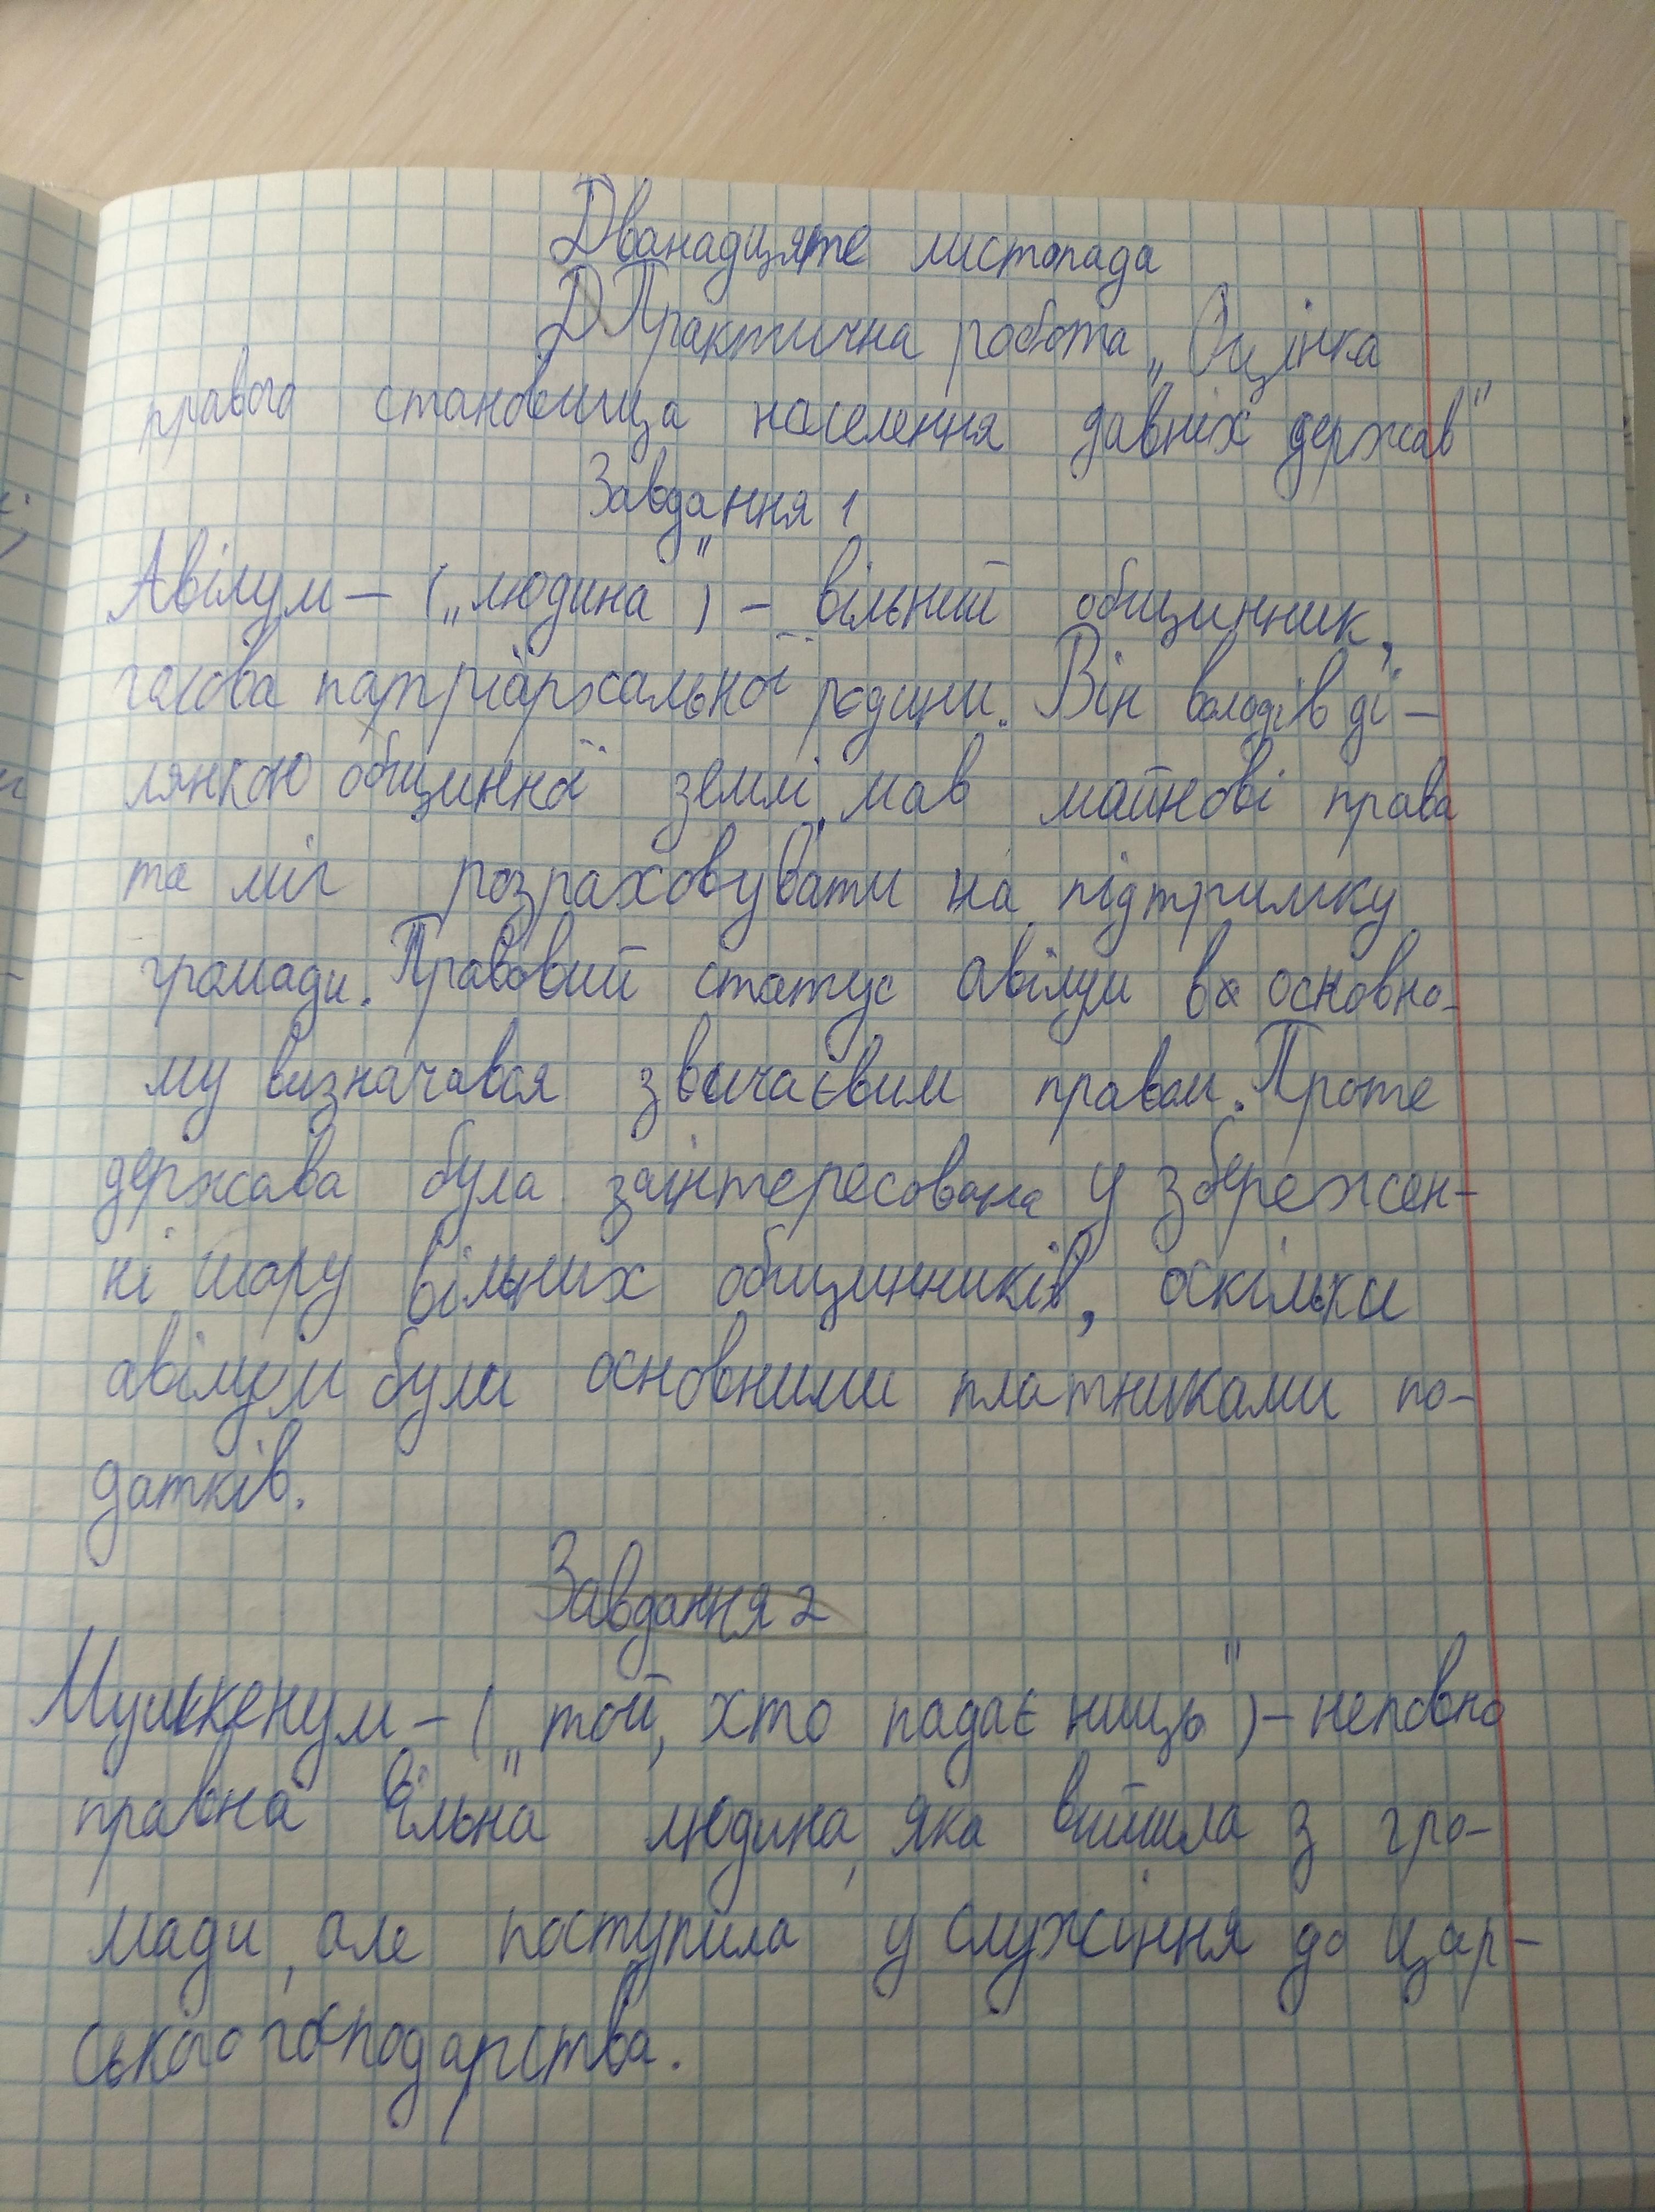 Дванадцяте листопада
Практична робота „Оцінка
правого становища населення давніх держав"
Завдання 1
Авілум – („людина") – вільний общинник,
голова патріархальної родини. Він володів ді-
лянкою общинної землі, мав майнові права
та міг розраховувати на підтримку
громади. Правовий статус авілум в основно-
му визначався звичаєвим правом. Проте
держава була заінтересована у збережен-
ні шару вільних общинників, оскільки
авілум були основними платниками по-
датків.
Завдання 2
Мушкенум – („той, хто падає ниць") – неповно
правна вільна людина, яка вийшла з гро-
мади, але поступила у служіння до цар-
ського господарства.